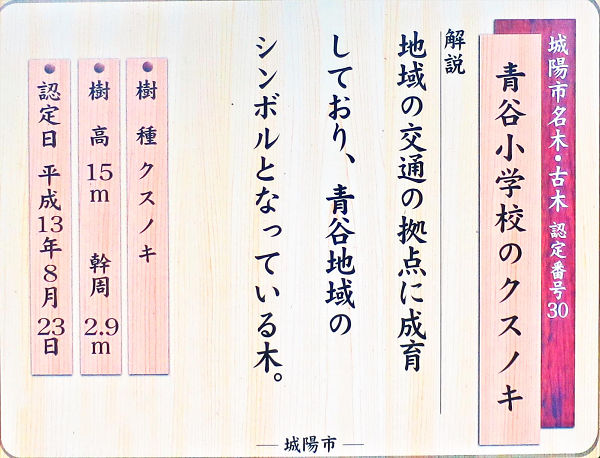 城陽市名木・古木 認定番号30
青谷小学校のクスノキ
解説
地域の交通の拠点に成育
しており、青谷地域の
シンボルとなっている木。
樹種 クスノキ
樹高 15m 幹周 2.9m
認定日 平成13年8月23日
城陽市